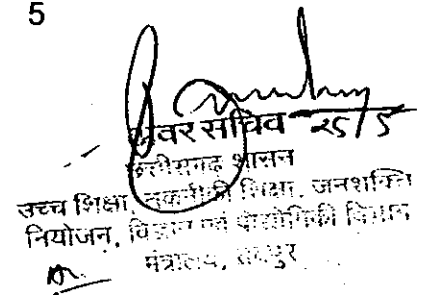 5
अवर सचिव 25/5
छत्तीसगढ़ शासन
उच्च शिक्षा, तकनीकी शिक्षा, जनशक्ति
नियोजन, विज्ञान एवं प्रौद्योगिकी विभाग
मंत्रालय, रायपुर